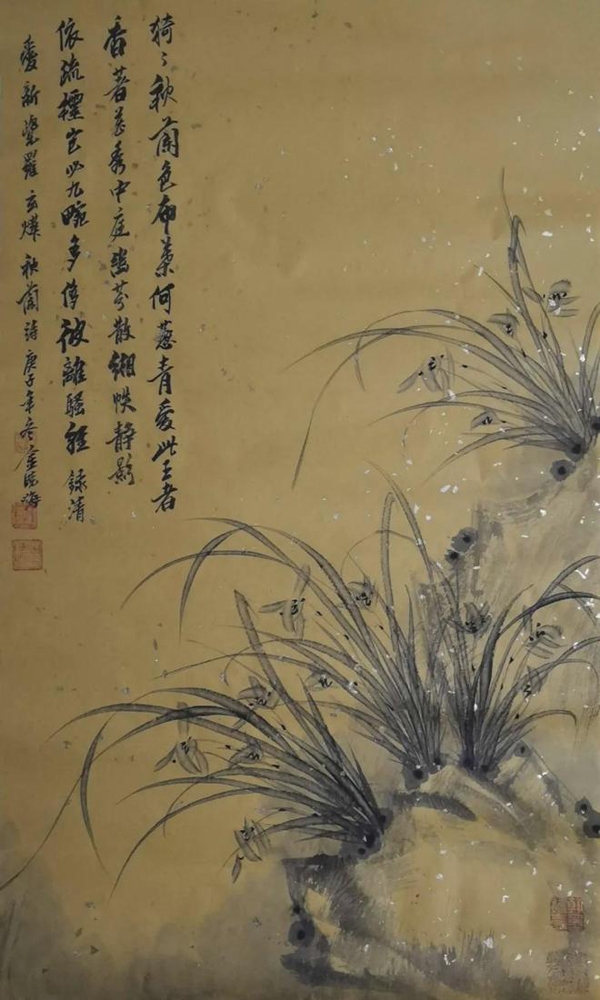 猗〻秋蘭色布葉何蔥青愛此王者
香著花秀中庭幽芬散緗帙静影
依疏櫺豈必九畹多侈彼離騷經 錄清
愛新覺羅玄燁秋蘭詩庚子年冬金陵